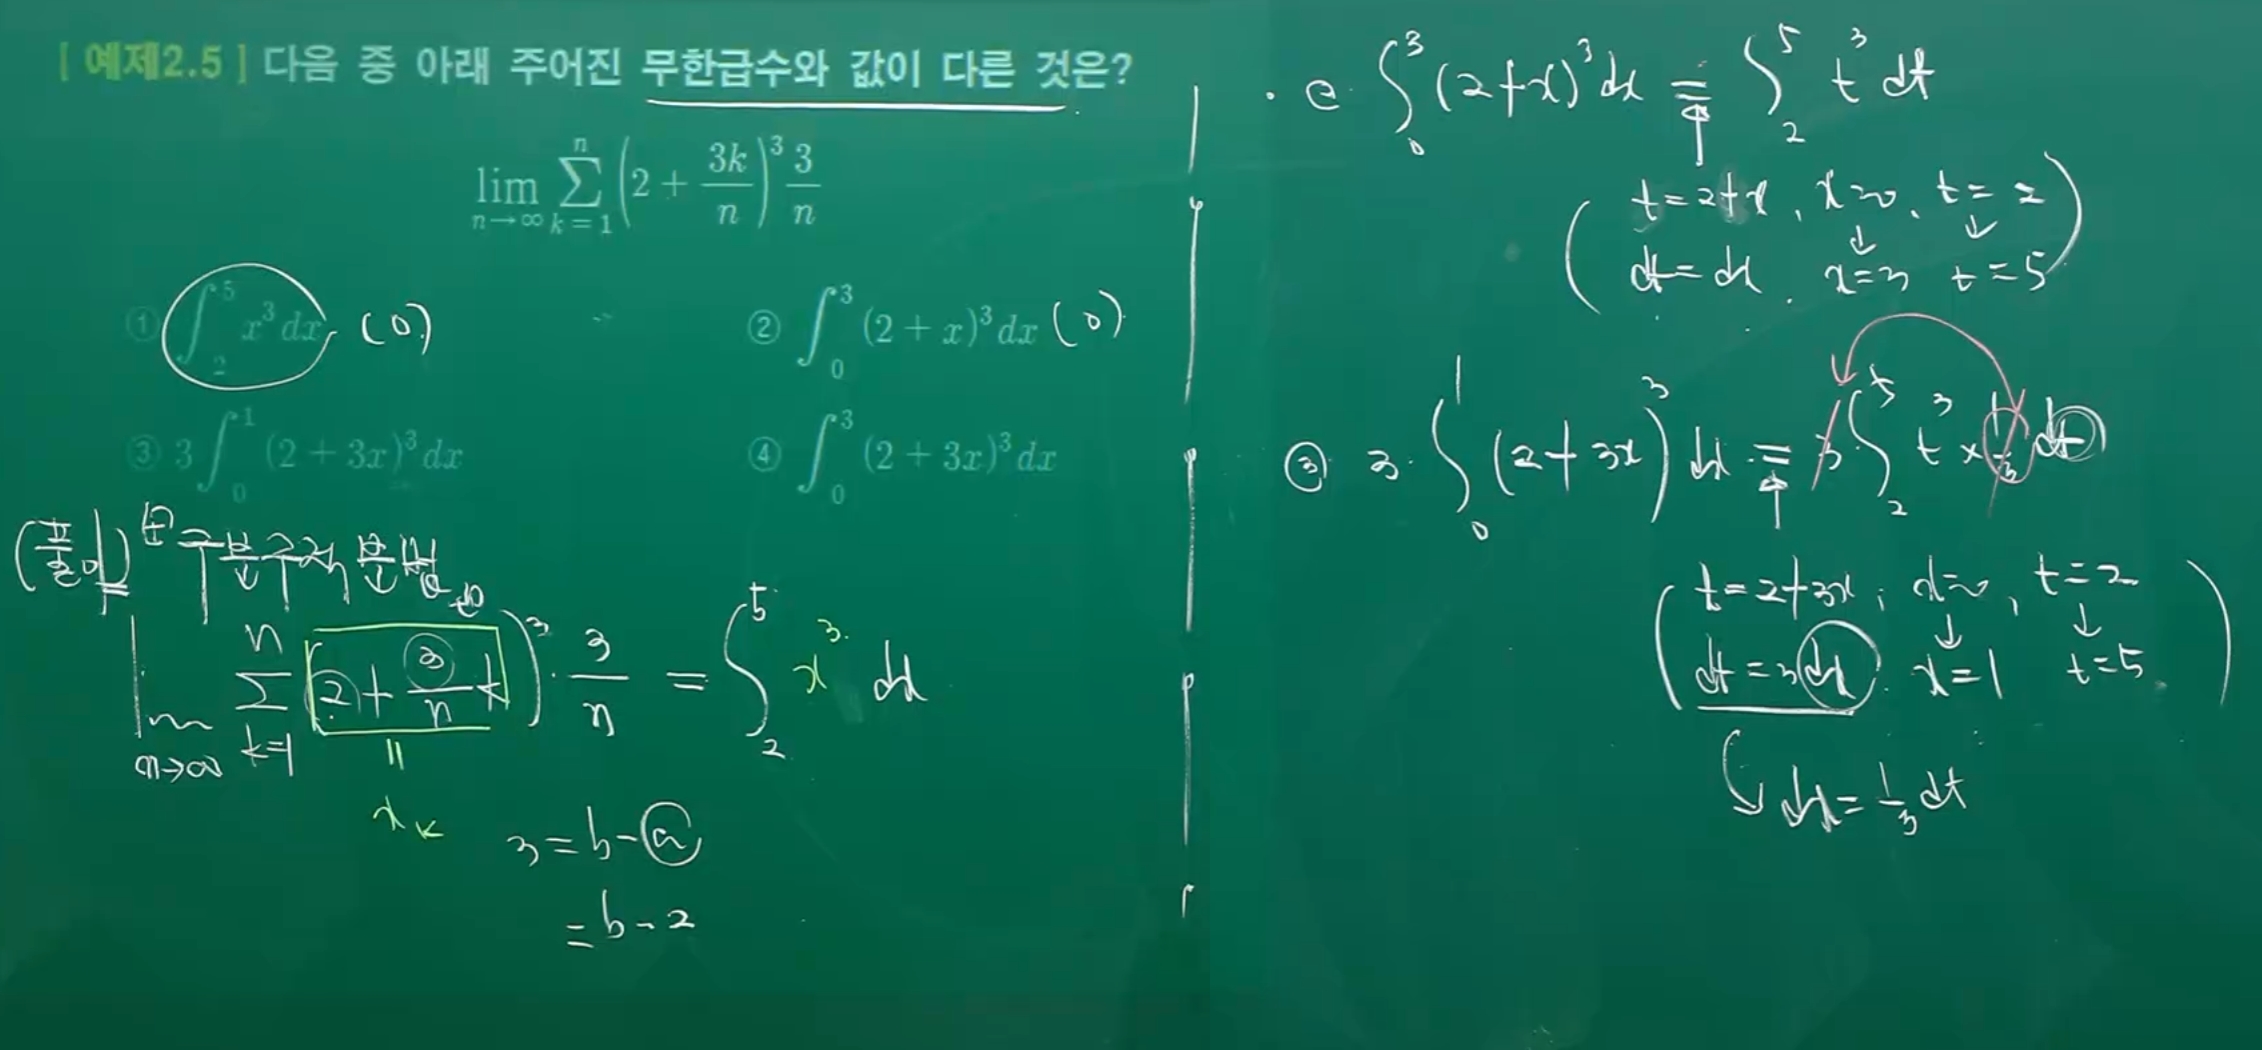 [ 예제2.5 ] 다음 중 아래 주어진 무한급수와 값이 다른 것은?
lim n→∞ ∑ k=1 n (2 + 3k/n)^3 3/n
① ∫_2^5 x^3 dx (O)
② ∫_0^3 (2 + x)^3 dx (O)
③ 3∫_0^1 (2 + 3x)^3 dx
④ ∫_0^3 (2 + 3x)^3 dx
(풀이)
lim n→∞ ∑ k=1 n (2 + 3/n k)^3 · 3/n = ∫_2^5 x^3 dx
||
x_k
3 = b - a
= b - 2
② ∫_0^3 (2+x)^3 dx = ∫_2^5 t^3 dt
( t = 2+x, x=0, t=2
↓ ↓
dt = dx. x=3 t=5 )
③ 3·∫_0^1 (2+3x)^3 dx = 3·∫_2^5 t^3 × 1/3 dt
( t = 2+3x, x=0, t=2
↓ ↓
dt = 3dx. x=1 t=5 )
↳ dx = 1/3 dt